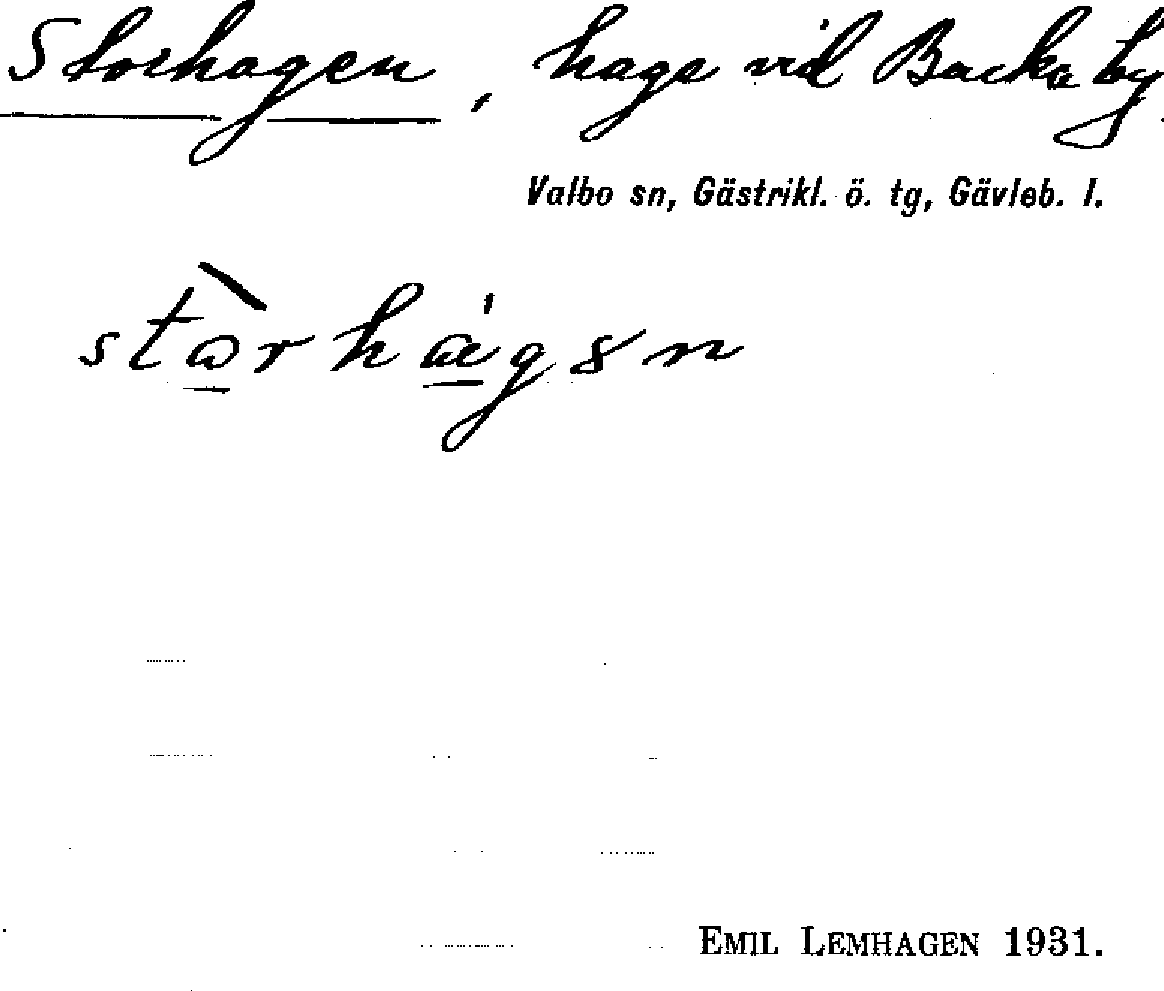 Storhagen, hage vid Backa by.
Valbo sn, Gästrikl. ö. tg, Gävleb. l.
EMIL LEMHAGEN 1931.